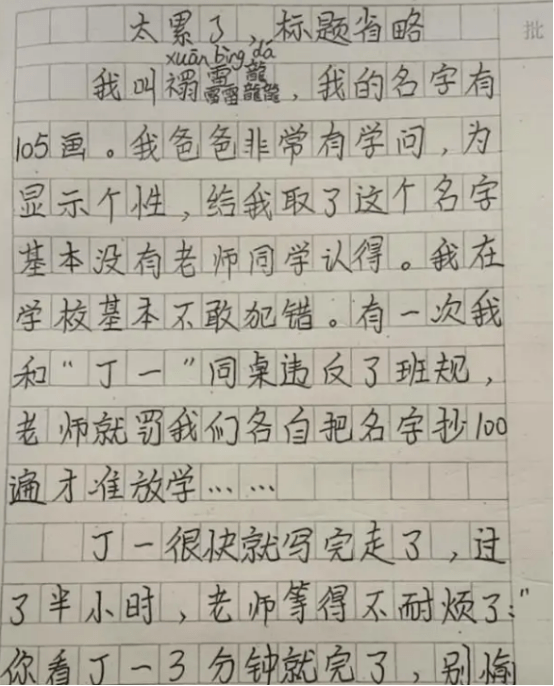 太累了，标题省略
批
xuān bìng dá
我叫禤靐龘，我的名字有
105画。我爸爸非常有学问，为
显示个性，给我取了这个名字
基本没有老师同学认得。我在
学校基本不敢犯错。有一次我
和“丁一”同桌违反了班规，
老师就罚我们各自把名字抄100
遍才准放学……
丁一很快就写完走了，过
了半小时，老师等得不耐烦了：“
你看丁一3分钟就完了，别